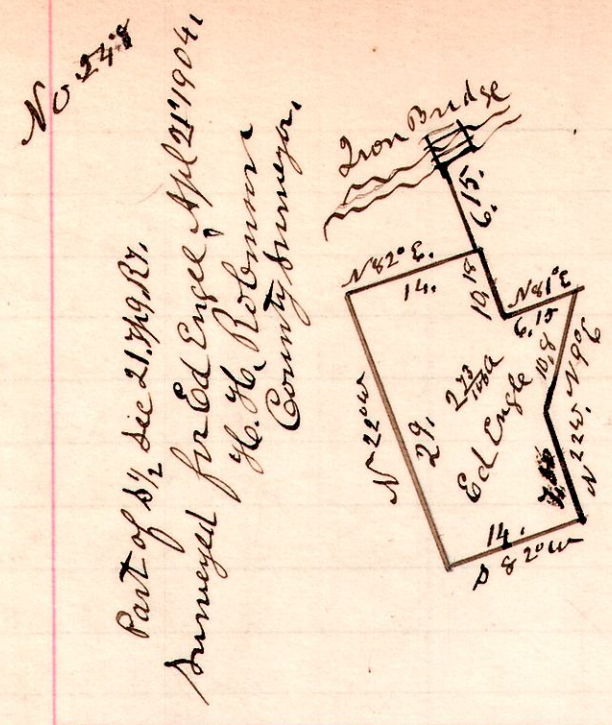 No 248
Part of S½ Sec 21. T19. R7.
Surveyed for Ed Engel, Apl 21st 1904,
H. H. Robinson
County Surveyor,
Iron Bridge
6.15.
N 82° E.
14.
10.18
N 81° E
6.15
10.8
N 9° E
N 22 W
29.
2 73/100 a
Ed Engle
N 22 W.
14.
S 82° W